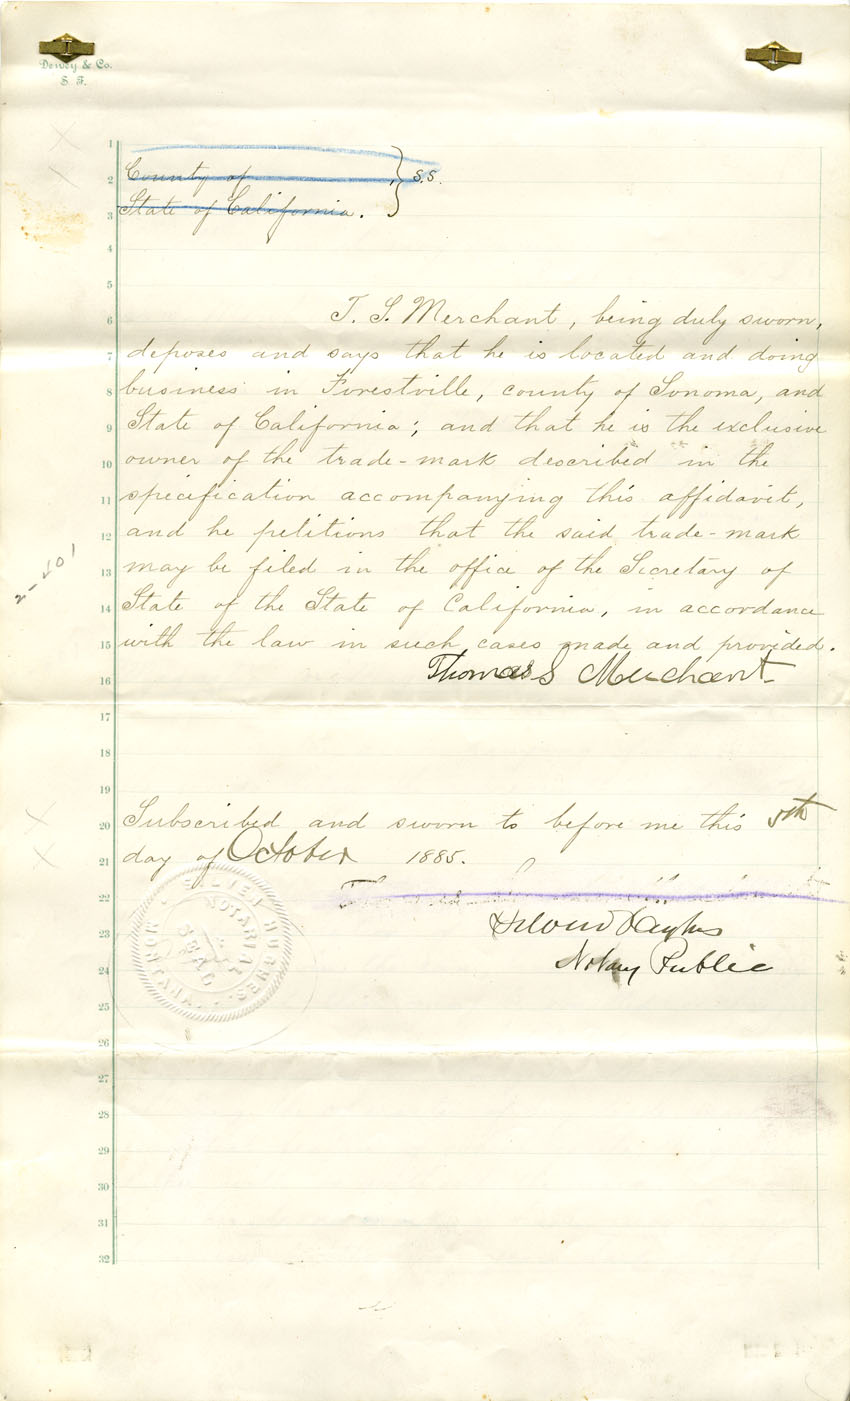 Dewey & Co.
S. F.
1
2 County of } s.s.
3 State of California.
4
5
6 T. S. Merchant, being duly sworn,
7 deposes and says that he is located and doing
8 business in Forestville, county of Sonoma, and
9 State of California; and that he is the exclusive
10 owner of the trade-mark described in the
11 specification accompanying this affidavit,
12 and he petitions that the said trade-mark
13 may be filed in the office of the Secretary of
14 State of the State of California, in accordance
15 with the law in such cases made and provided.
16 Thomas S Merchant
17
18
19
20 Subscribed and sworn to before me this 5th
21 day of October 1885.
22
23 Hughes
24 Notary Public
25
26
27
28
29
30
31
32
HUGHES
NOTARIAL
SEAL